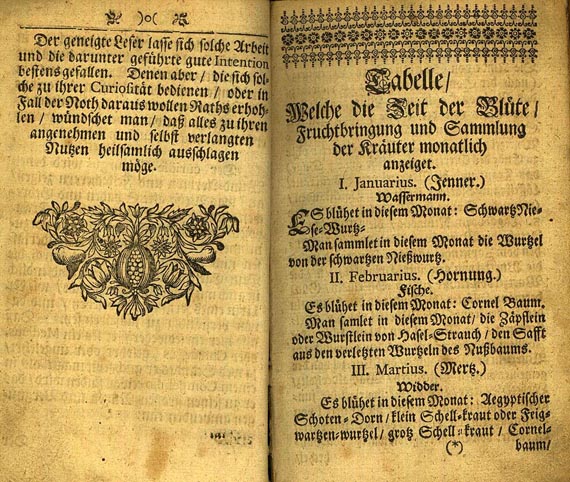 )o(
Der geneigte Leser lasse sich solche Arbeit
und die darunter geführte gute Intention
bestens gefallen. Denen aber / die sich sol-
che zu ihrer Curiosität bedienen / oder in
Fall der Noth daraus wollen Raths erhoh-
len / wündschet man / daß alles zu ihren
angenehmen und selbst verlangten
Nutzen heilsamlich ausschlagen
möge.
Tabelle /
Welche die Zeit der Blüte /
Fruchtbringung und Sammlung
der Kräuter monatlich
anzeiget.
I. Januarius. (Jenner.)
Wassermann.
ES blühet in diesem Monat: Schwartz Nie-
se-Wurtz-
Man sammlet in diesem Monat die Wurtzel
von der schwartzen Nießwurtz.
II. Februarius. (Hornung.)
Fische.
Es blühet in diesem Monat: Cornel Baum.
Man samlet in diesem Monat / die Zäpflein
oder Würstlein von Hasel-Strauch / den Safft
aus den verletzten Wurtzeln des Nußbaums.
III. Martius. (Mertz.)
Widder.
Es blühet in diesem Monat: Aegyptischer
Schoten-Dorn / klein Schell-kraut oder Feig-
wartzen-wurtzel / groß Schell-kraut / Cornel-
(*) baum /